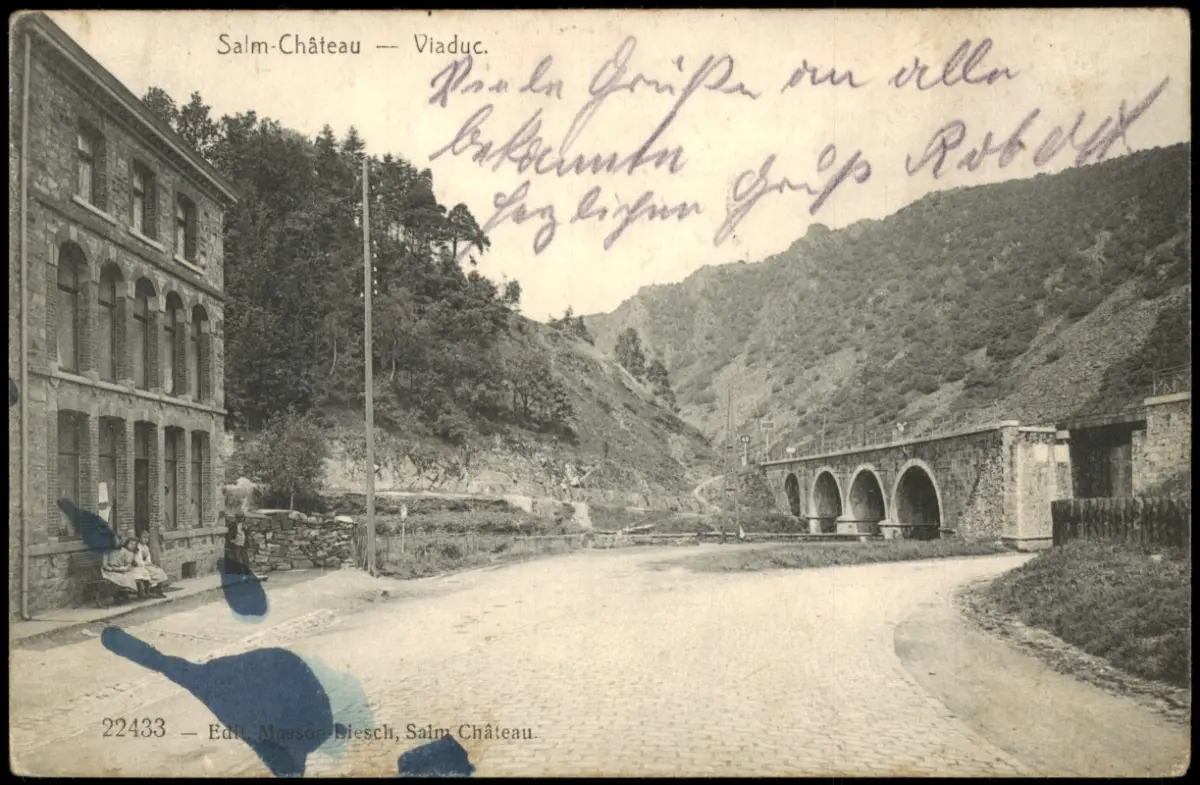 Salm-Château — Viaduc.
Viele Grüße an alle
bekannten
herzlichen Gruß Robert
22433 — Edit. Masson-Liesch, Salm Château.